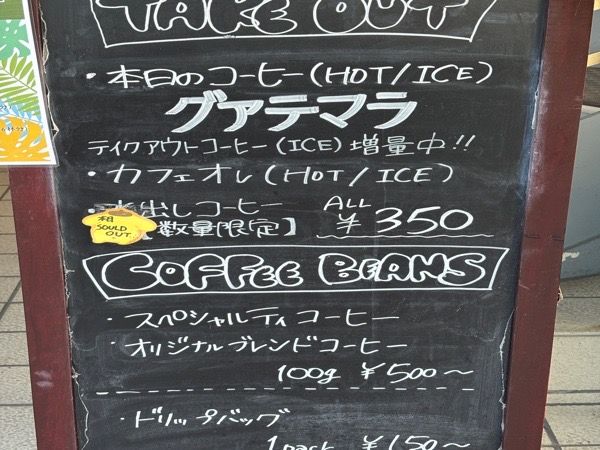 TAKE OUT
・本日のコーヒー(HOT/ICE)
グアテマラ
テイクアウトコーヒー(ICE)増量中!!
・カフェオレ(HOT/ICE)
水出しコーヒー
数量限定】
ALL
¥350
本日
SOULD
OUT
COFFEE BEANS
・スペシャルティコーヒー
・オリジナルブレンドコーヒー
100g ¥500〜
・ドリップバッグ
1pack ¥150〜